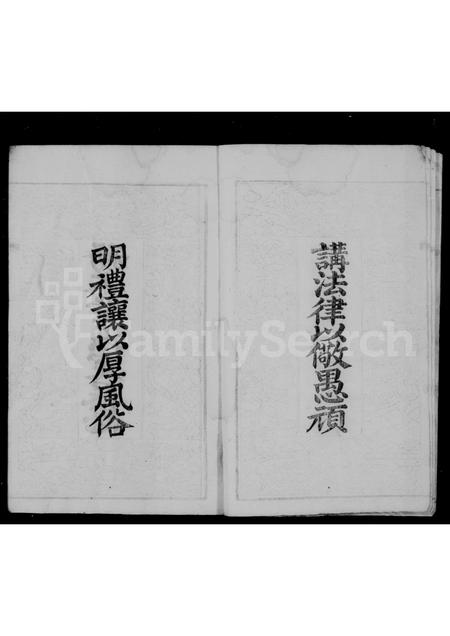 講法律以儆愚頑
明禮讓以厚風俗
FamilySearch